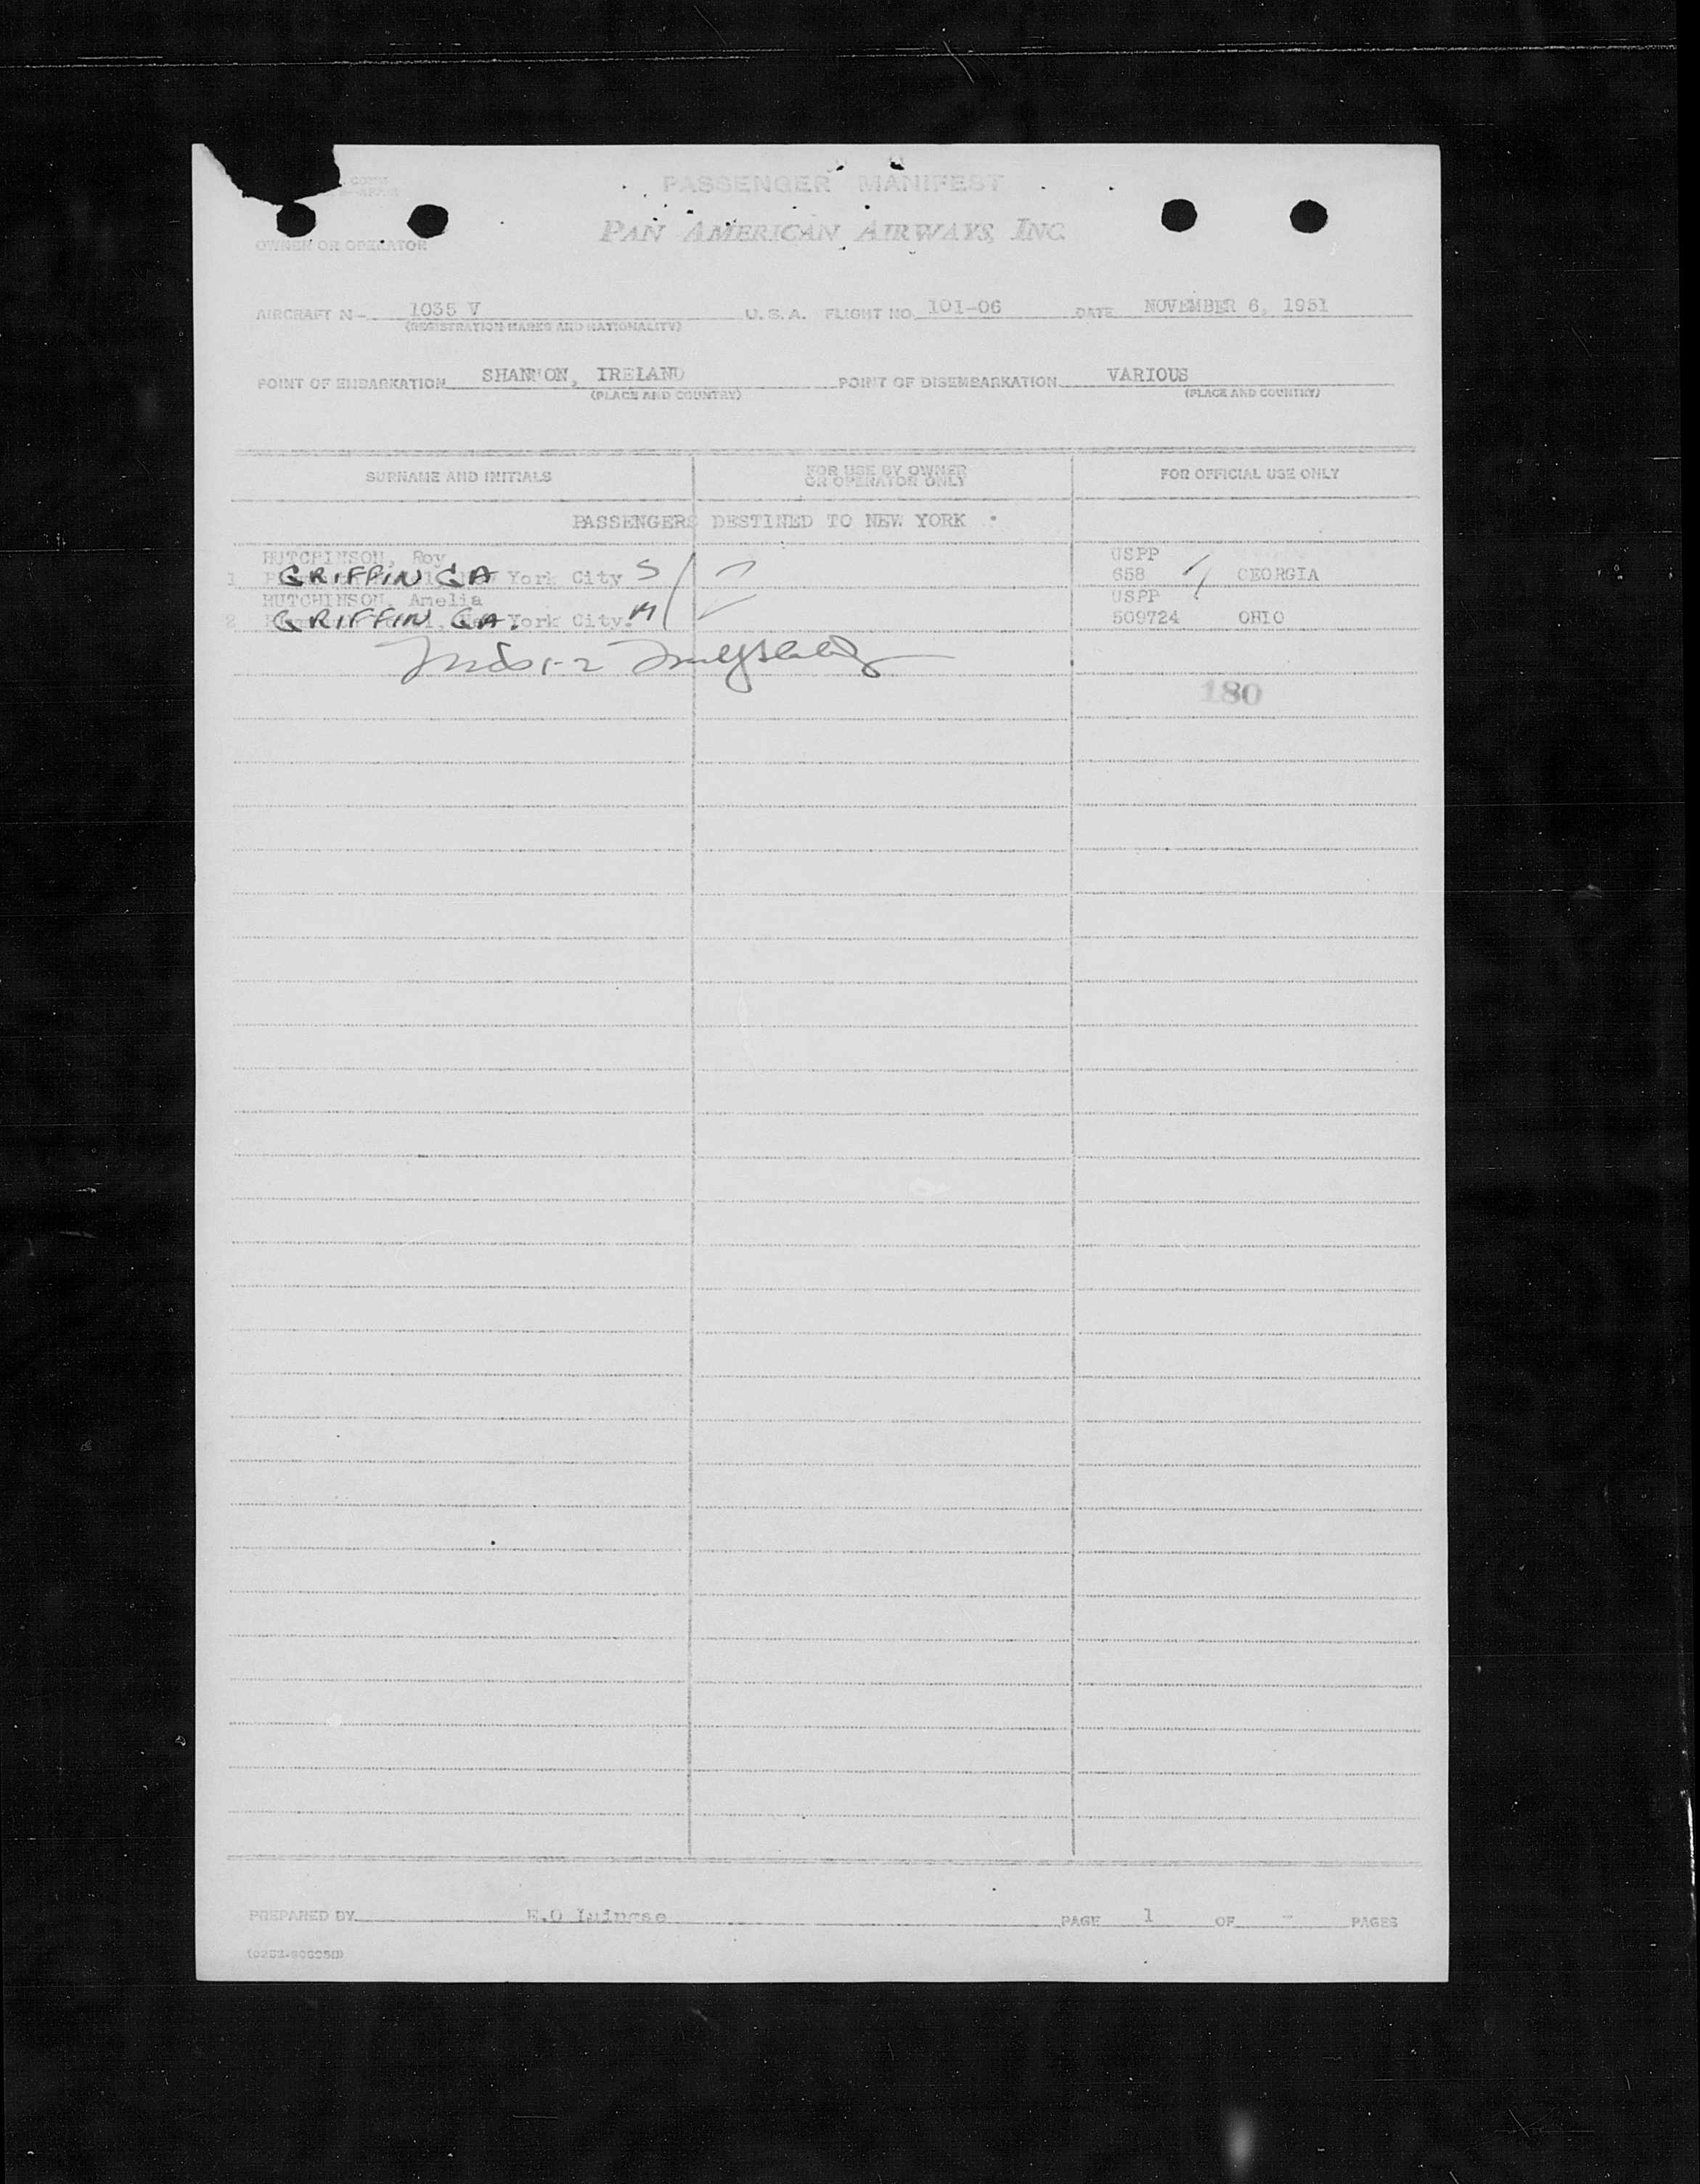 PASSENGER MANIFEST
PAN AMERICAN AIRWAYS, INC.
OWNER OR OPERATOR
AIRCRAFT N- 1035 V U. S. A. FLIGHT NO. 101-06 DATE NOVEMBER 6, 1951
(REGISTRATION MARKS AND NATIONALITY)
POINT OF EMBARKATION SHANNON, IRELAND POINT OF DISEMBARKATION VARIOUS
(PLACE AND COUNTRY) (PLACE AND COUNTRY)
SURNAME AND INITIALS FOR USE BY OWNER OR OPERATOR ONLY FOR OFFICIAL USE ONLY
PASSENGERS DESTINED TO NEW YORK
HUTCHINSON, Roy USPP
1 GRIFFIN GA York City S 658 GEORGIA
HUTCHINSON, Amelia USPP
2 GRIFFIN GA. York City. M 509724 OHIO
1-2
180
PREPARED BY PAGE 1 OF - PAGES